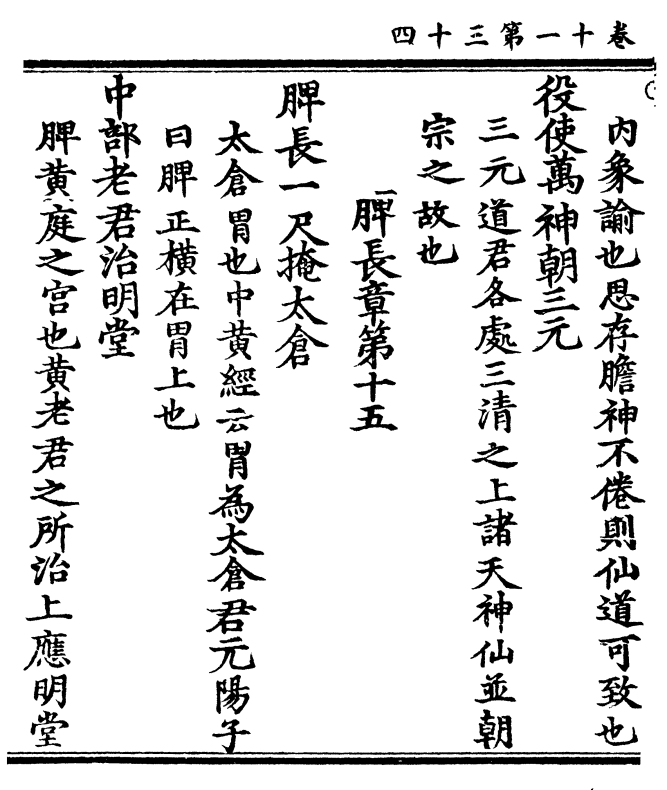 卷十一第三十四
内象諭也思存膽神不倦則仙道可致也
役使萬神朝三元
三元道君各處三清之上諸天神仙並朝
宗之故也
脾長章第十五
脾長一尺掩太倉
太倉胃也中黃經云胃為太倉君元陽子
曰脾正橫在胃上也
中部老君治明堂
脾黃庭之宫也黃老君之所治上應明堂